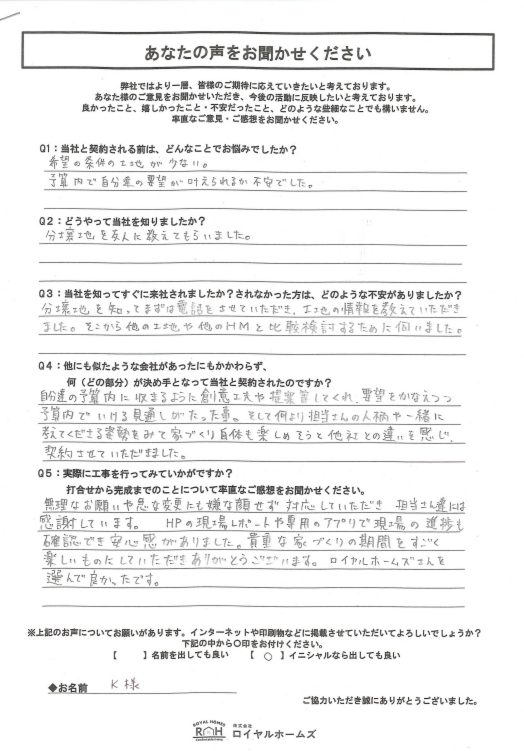 あなたの声をお聞かせください
弊社ではより一層、皆様のご期待に応えていきたいと考えております。
あなた様のご意見をお聞かせいただき、今後の活動に反映したいと考えております。
良かったこと、嬉しかったこと・不安だったこと、どのような些細なことでも構いません。
率直なご意見・ご感想をお聞かせください。
Q1：当社と契約される前は、どんなことでお悩みでしたか？
希望の条件の土地が少ない。
予算内で自分達の要望が叶えられるか不安でした。
Q2：どうやって当社を知りましたか？
分壌地を友人に教えてもらいました。
Q3：当社を知ってすぐに来社されましたか？されなかった方は、どのような不安がありましたか？
分壌地を知ってまずは電話をさせていただき、土地の情報を教えていただき
ました。そこから他の土地や他のHMと比較検討するために伺いました。
Q4：他にも似たような会社があったにもかかわらず、
何（どの部分）が決め手となって当社と契約されたのですか？
自分達の予算内に収まるように創意工夫や提案等してくれ、要望をかなえつつ
予算内でいける見通しがたった事。そして何より担当さんの人柄や一緒に
考えてくださる姿勢をみて家づくり自体も楽しめそうと他社との違いを感じ、
契約させていただきました。
Q5：実際に工事を行ってみていかがですか？
打合せから完成までのことについて率直なご感想をお聞かせください。
無理なお願いや急な変更にも嫌な顔せず対応していただき 担当さん達には
感謝しています。 HPの現場レポートや専用のアプリで現場の進捗も
確認でき安心感がありました。貴重な家づくりの期間をすごく
楽しいものにしていただきありがとうございます。ロイヤルホームズさんを
選んで良かったです。
※上記のお声についてお願いがあります。インターネットや印刷物などに掲載させていただいてよろしいでしょうか？
下記の中から〇印をお付けください。
【　】名前を出しても良い 【 〇 】イニシャルなら出しても良い
◆お名前 K様
ご協力いただき誠にありがとうございました。
ROYAL HOMES
RH
株式会社
ロイヤルホームズ